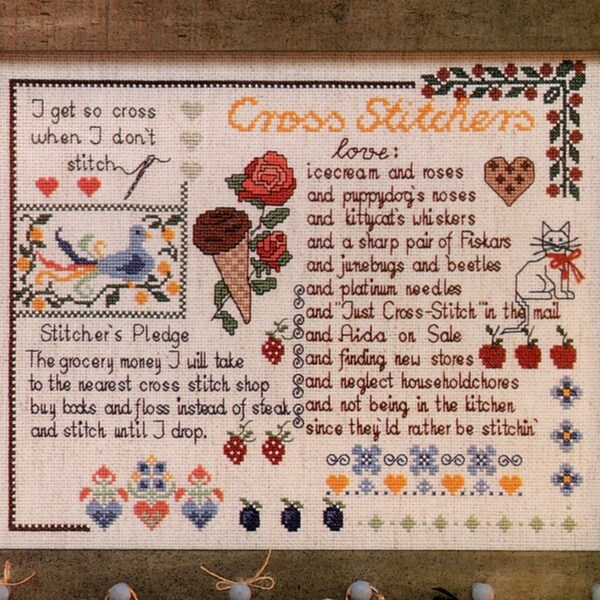 I get so cross
when I don't
stitch
Cross Stitchers
love:
icecream and roses
and puppydog's noses
and kittycat's whiskers
and a sharp pair of Fiskars
and junebugs and beetles
and platinum needles
and "Just Cross-Stitch" in the mail
and Aida on Sale
and finding new stores
and neglect householdchores
and not being in the kitchen
since they'ld rather be stitchin'
Stitcher's Pledge
The grocery money I will take
to the nearest cross stitch shop
buy books and floss instead of steak
and stitch until I drop.